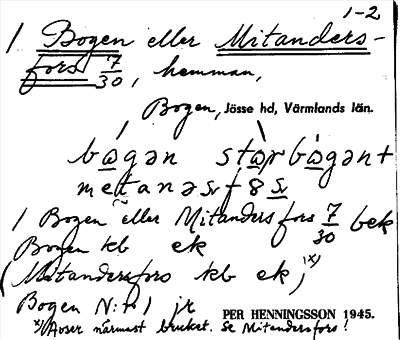 1-2
1 Bogen eller Mitanders-
fors 7/30, hemman,
Bogen, Jösse hd, Värmlands län.
bogən storbogənt
metanəsfös
1 Bogen eller Mitandersfors 7/30 bek
Bogen kb ek
(Mitandersfors kb ek, x)
Bogen N:r 1 jr
PER HENNINGSSON 1945.
x) Avser närmast bruket. Se Mitandersfors!